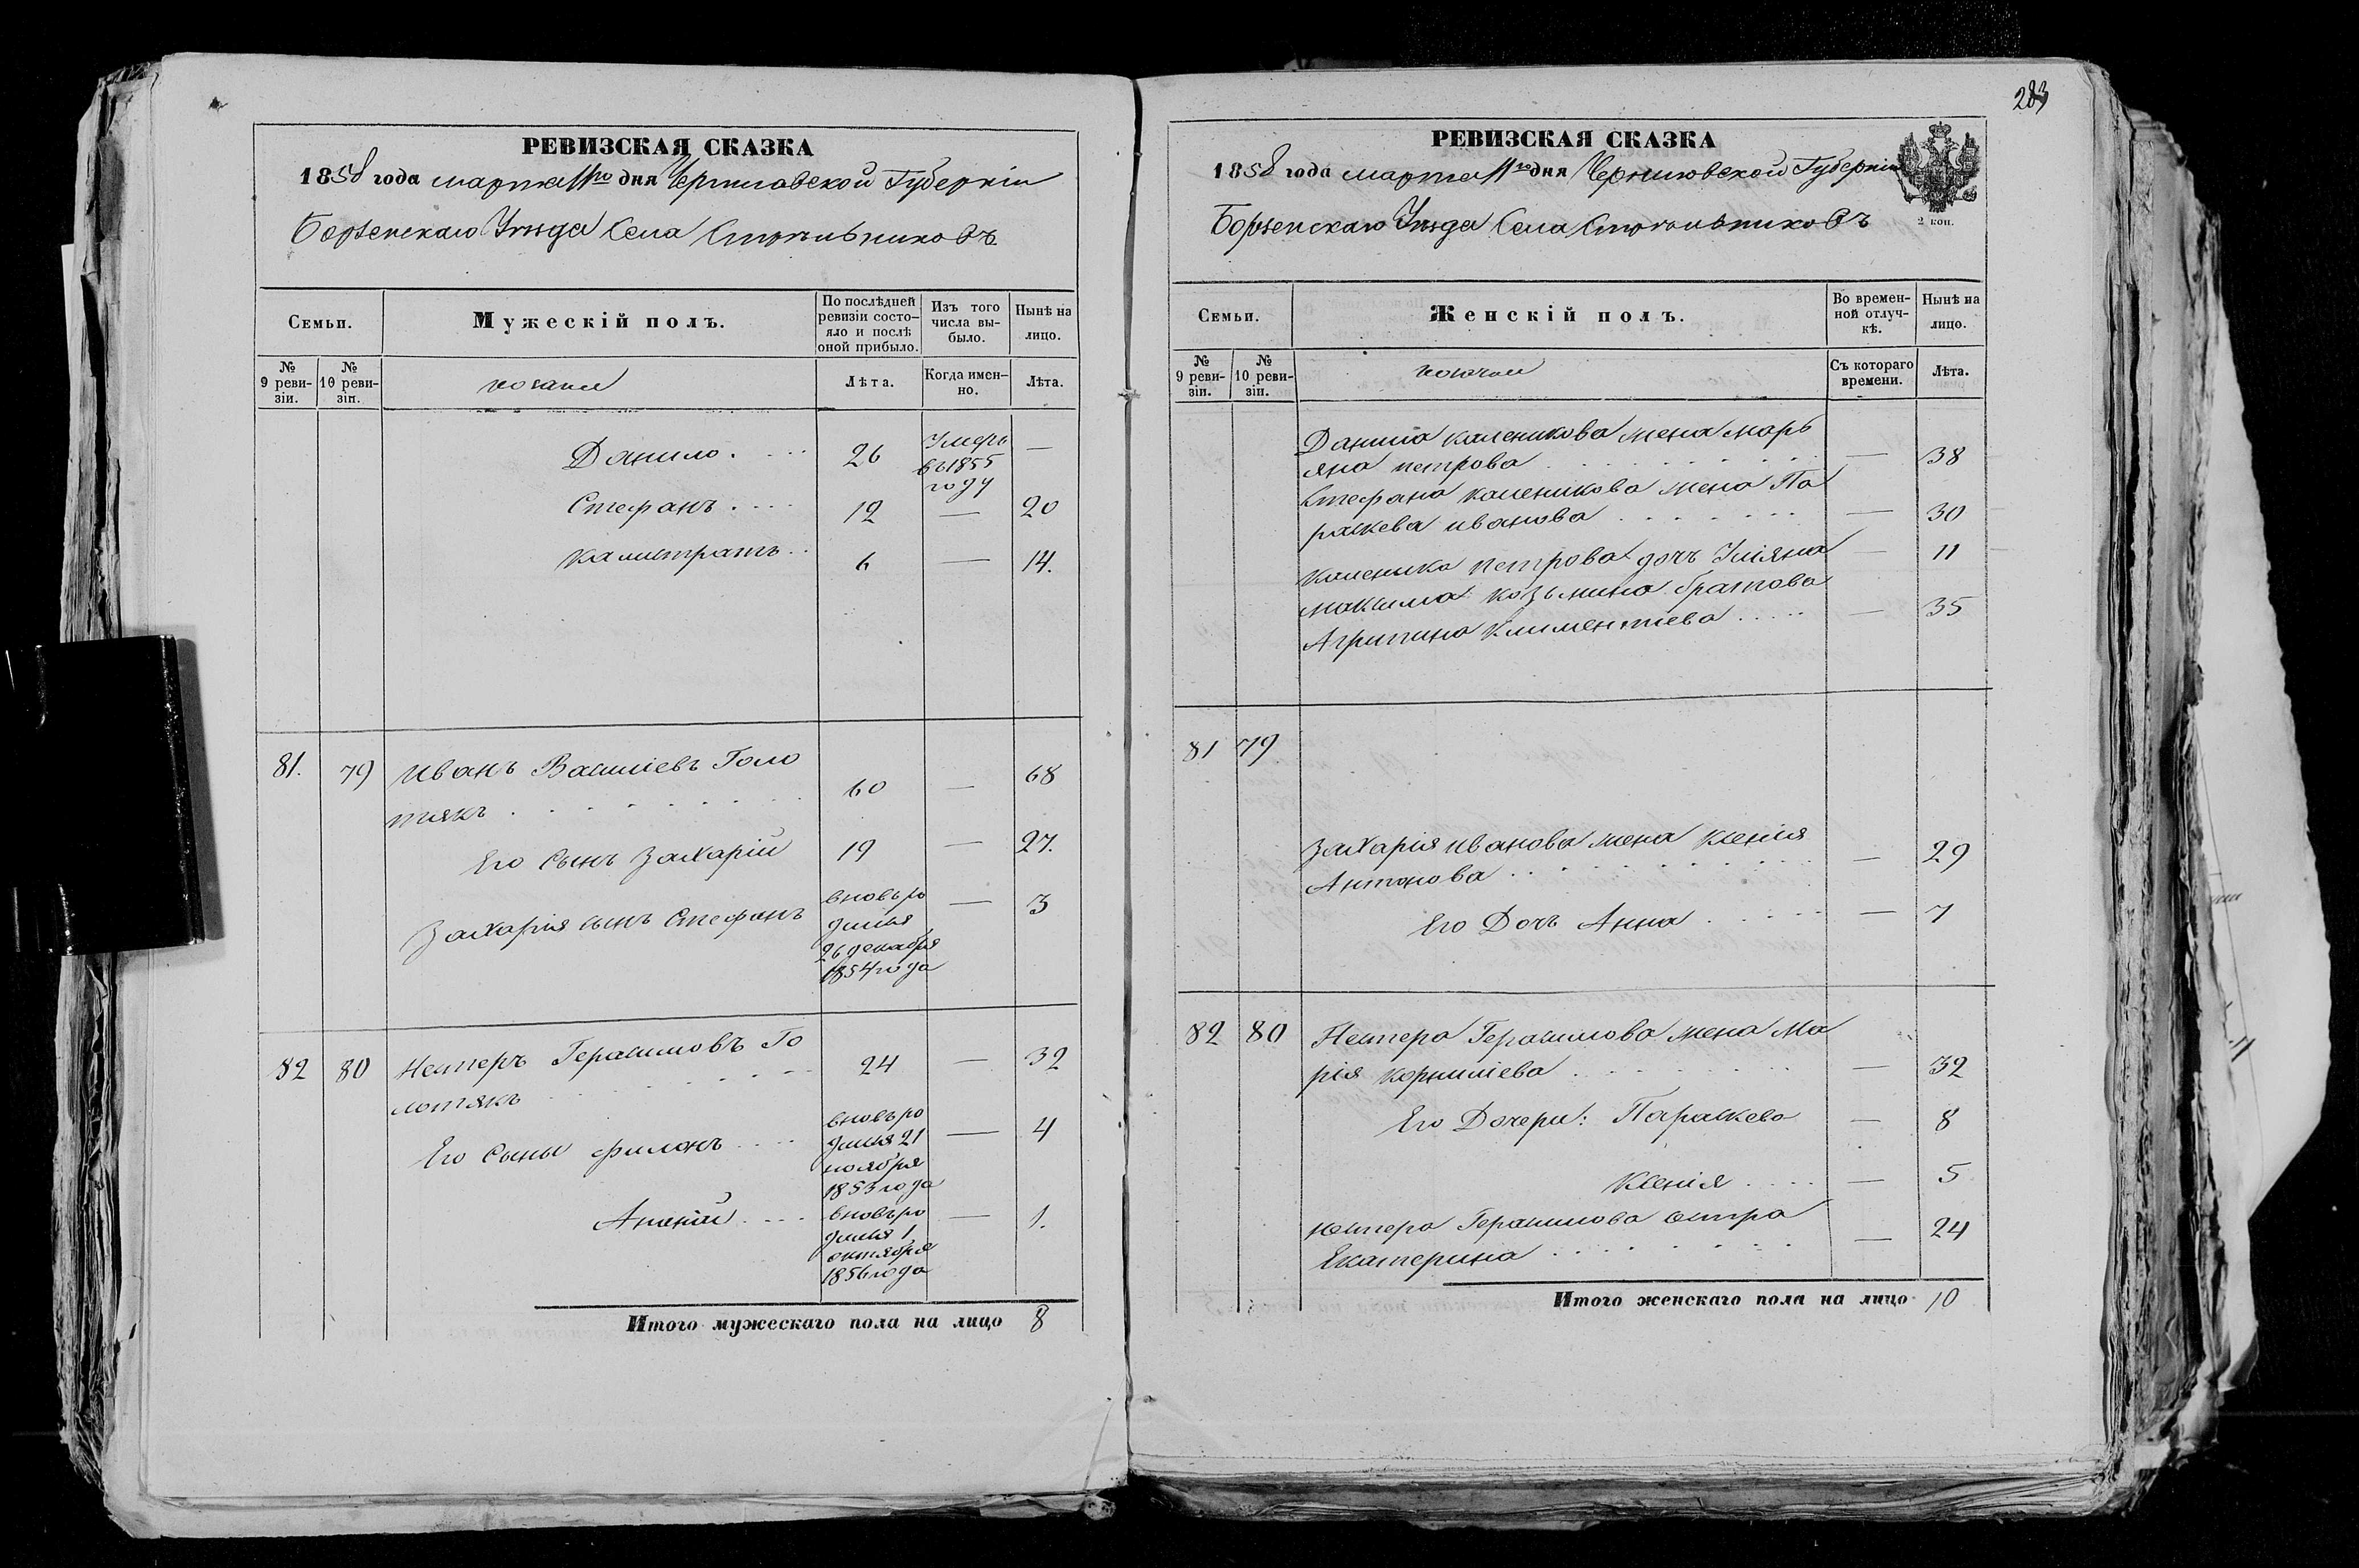 РЕВИЗСКАЯ СКАЗКА
1858 года марта 11го дня Черниговской Губерніи
Борзенскаго Уезда Села Стрельниковъ
Семьи.
Мужескій полъ.
По послѣдней ревизіи состо-
яло и послѣ
оной прибыло.
Изъ того
числа вы-
было.
Нынѣ на
лицо.
№
9 реви-
зіи.
№
10 реви-
зіи.
козаки
Лѣта.
Когда имен-
но.
Лѣта.
Данило . . . . 26 Умеръ —
въ 1855
году
Стефанъ . . . . 12 — 20
Калистратъ . . 6 — 14.
81. 79 Иванъ Василіевъ Голо
тякъ . . . . . . . 60 — 68
Его Сынъ Захарій 19 — 27.
Захарія сынъ Стефанъ вновь ро — 3
дился
26 декабря
1854 года
82 80 Нестеръ Герасимовъ Го
лотякъ . . . . . . 24 — 32
Его Сыны Филонъ . . . . вновь ро — 4
дился 21
ноября
1853 года
Ананій . . . . вновь ро — 1.
дился 1
октября
1856 года
Итого мужескаго пола на лицо 8
283
РЕВИЗСКАЯ СКАЗКА
1858 года марта 11го дня Черниговской Губерніи
Борзенскаго Уезда Села Стрельниковъ
2 коп.
Семьи.
Женскій полъ.
Во времен-
ной отлуч-
кѣ.
Нынѣ на
лицо.
№
9 реви-
зіи.
№
10 реви-
зіи.
козачки
Съ котораго
времени.
Лѣта.
Данила каленикова жена Марь
яна петрова . . . . . . . — 38
Стефана каленикова жена Па
раскева иванова . . . . . . — 30
каленика петрова дочъ Уліяна — 11
максима козьмина братова
Агрипина Климентіева . . . . . — 35
81 79
Захарія иванова жена ксенія
Антонова . . . . . . . . — 29
Его Дочъ Анна . . . . . — 7
82 80 Нестера Герасимова жена Ма
рія корниліева . . . . . . — 32
Его Дочери: Параскева — 8
Ксенія . . . . — 5
Нестера Герасимова сестра
Екатерина . . . . . . . — 24
Итого женскаго пола на лицо 10